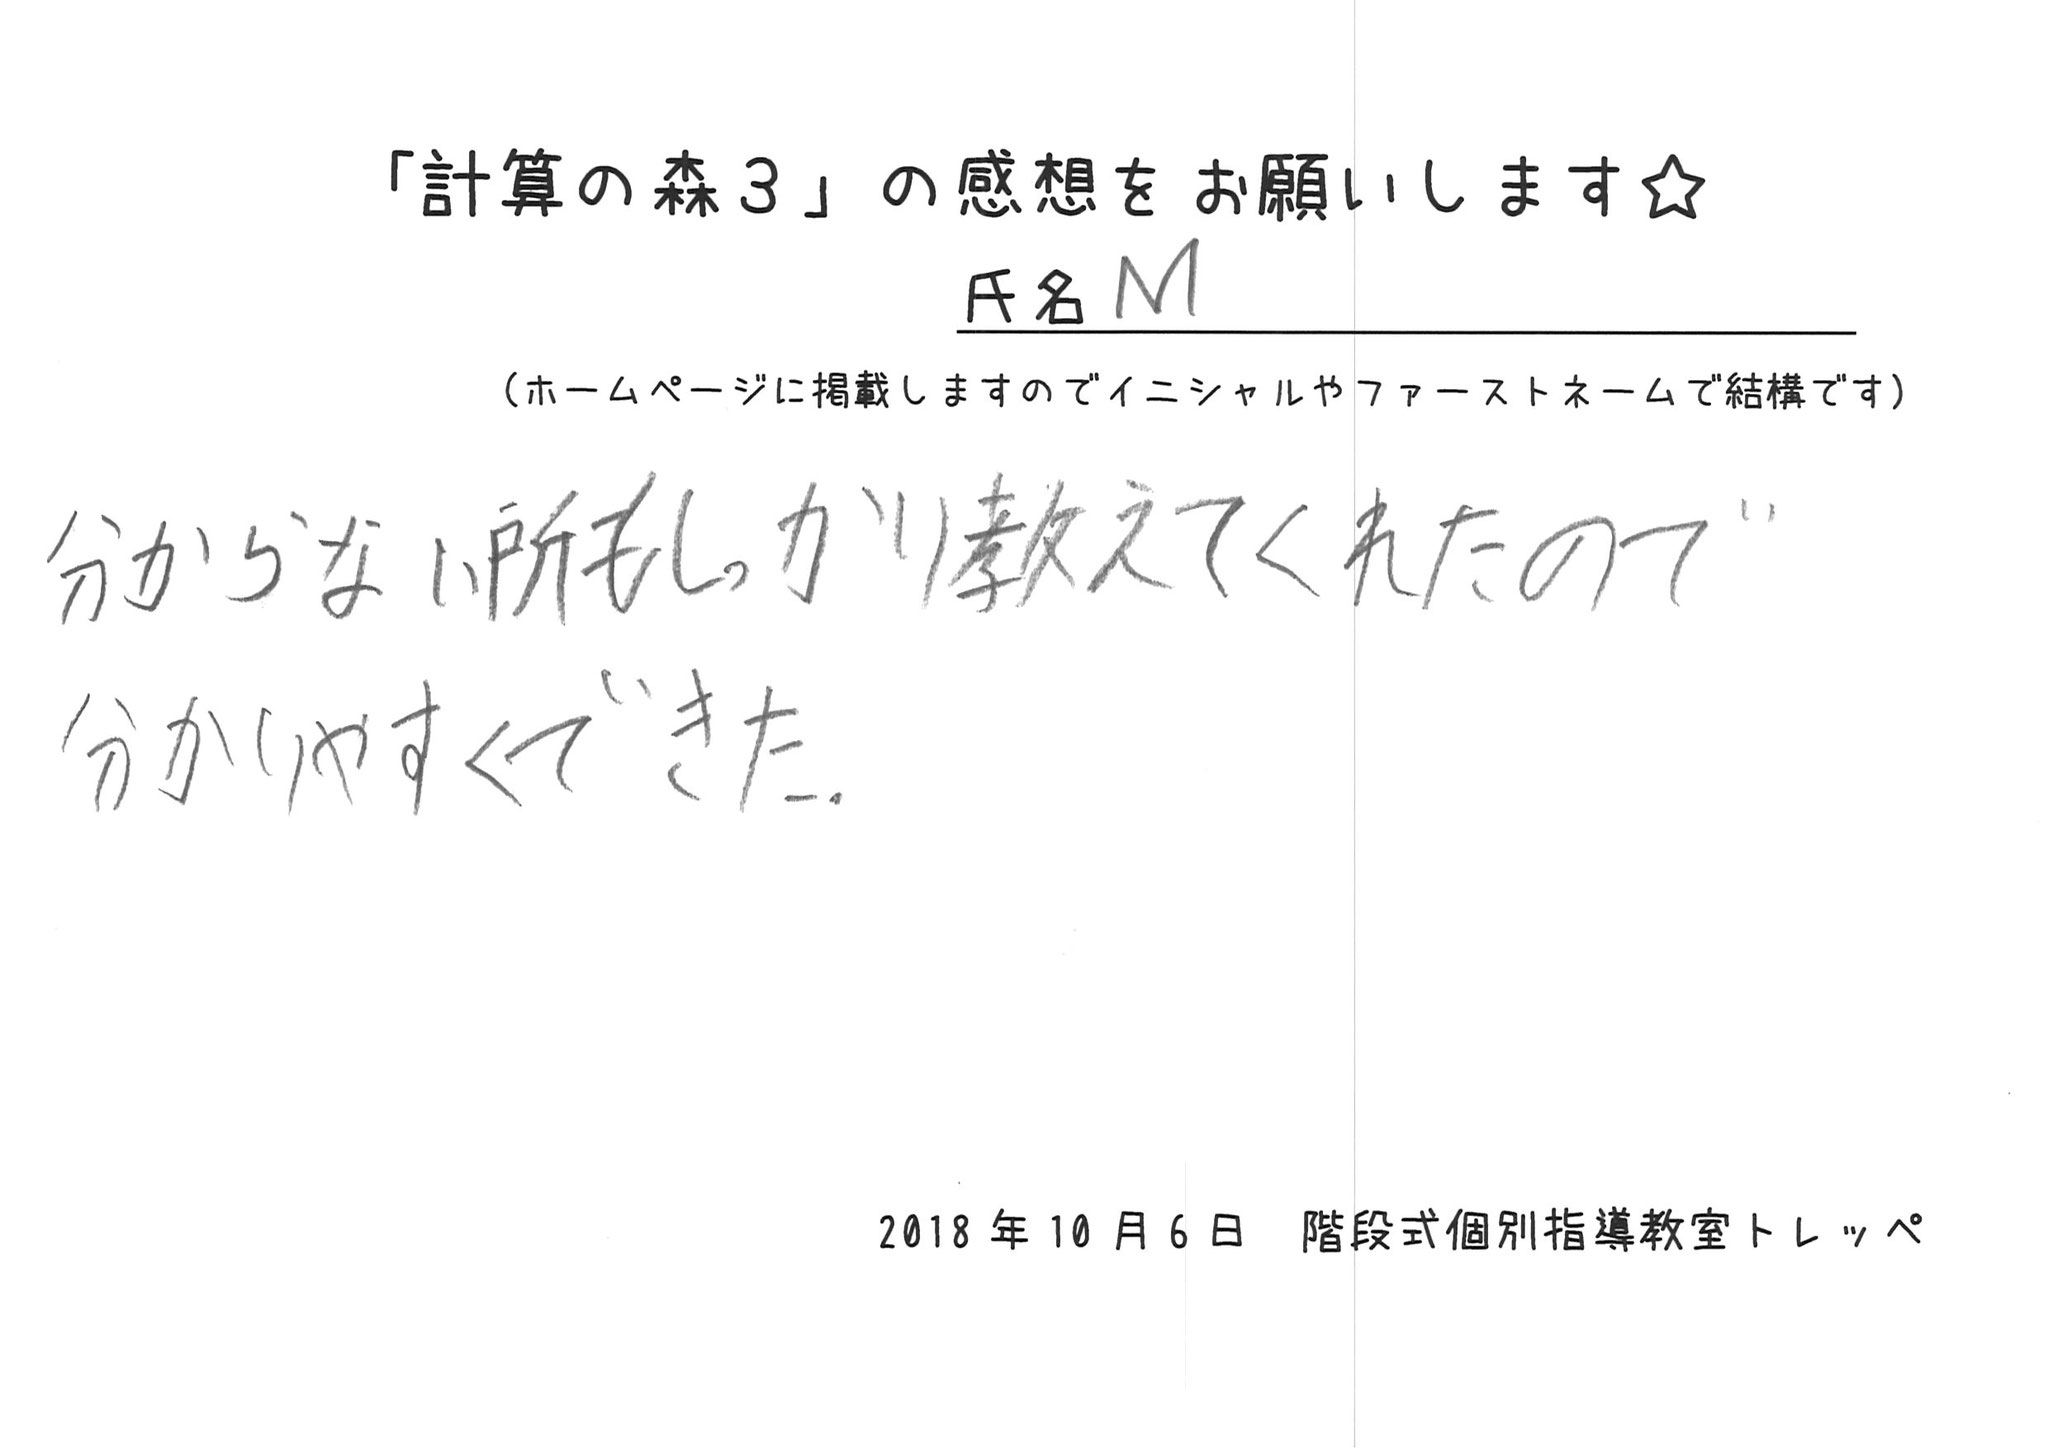 「計算の森３」の感想をお願いします☆
氏名 M
（ホームページに掲載しますのでイニシャルやファーストネームで結構です）
分からない所もしっかり教えてくれたので
分かりやすくできた.
2018年10月6日　階段式個別指導教室トレッペ